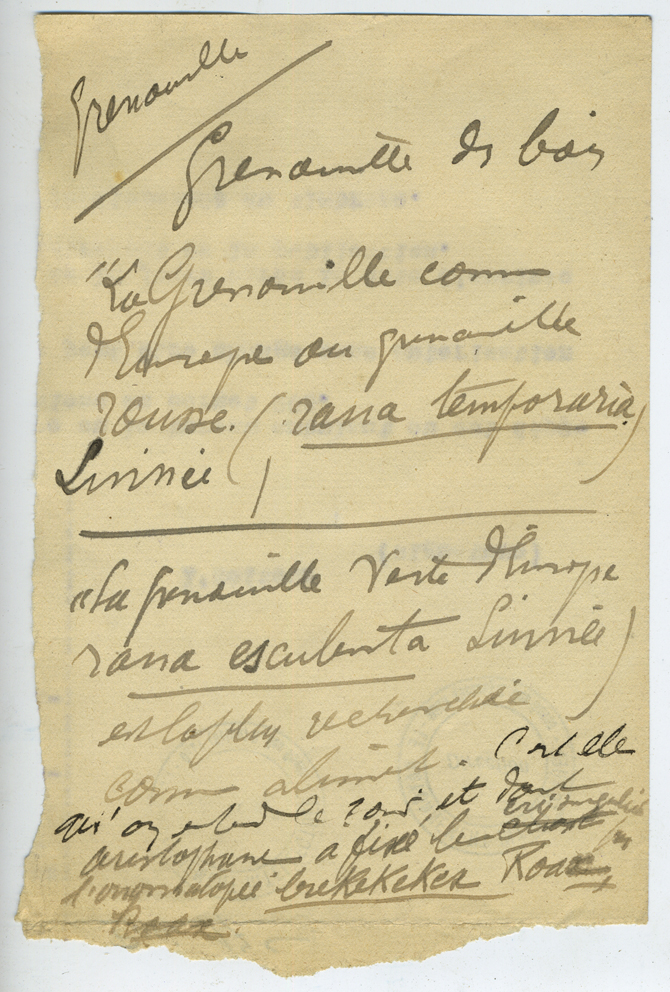 Grenouille
Grenouille des bois
"La Grenouille comm
d'Europe ou grenouille
rousse. (rana temporaria)
Linnée
"La grenouille verte d'Europe
rana esculenta Linnée)
est la plus recherchée
comm aliment. C'est elle
qu'on entend le soir et dont
aristophane a fixé le chant
l'onomatopée brekekekex Koax
Koax.